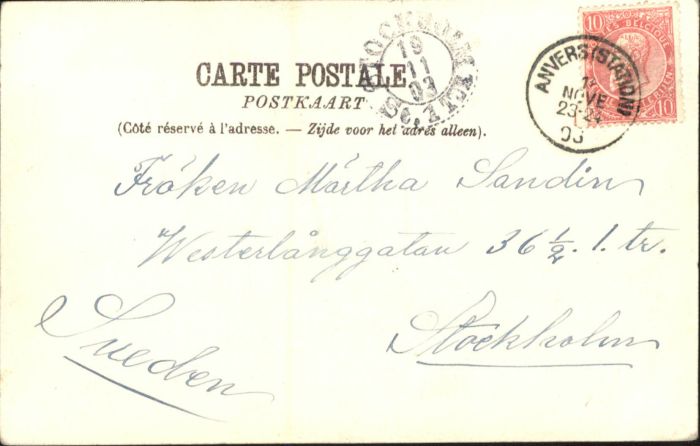 CARTE POSTALE
POSTKAART
(Côté réservé à l'adresse. — Zijde voor het adres alleen).
STOCKHOLM
19
11
03
10
10
BELGIQUE
ANVERS (STATION)
NOVE
23-24
03
Fröken Märtha Sandin
Westerlånggatan 36 ½. 1. tr.
Stockholm
Sweden